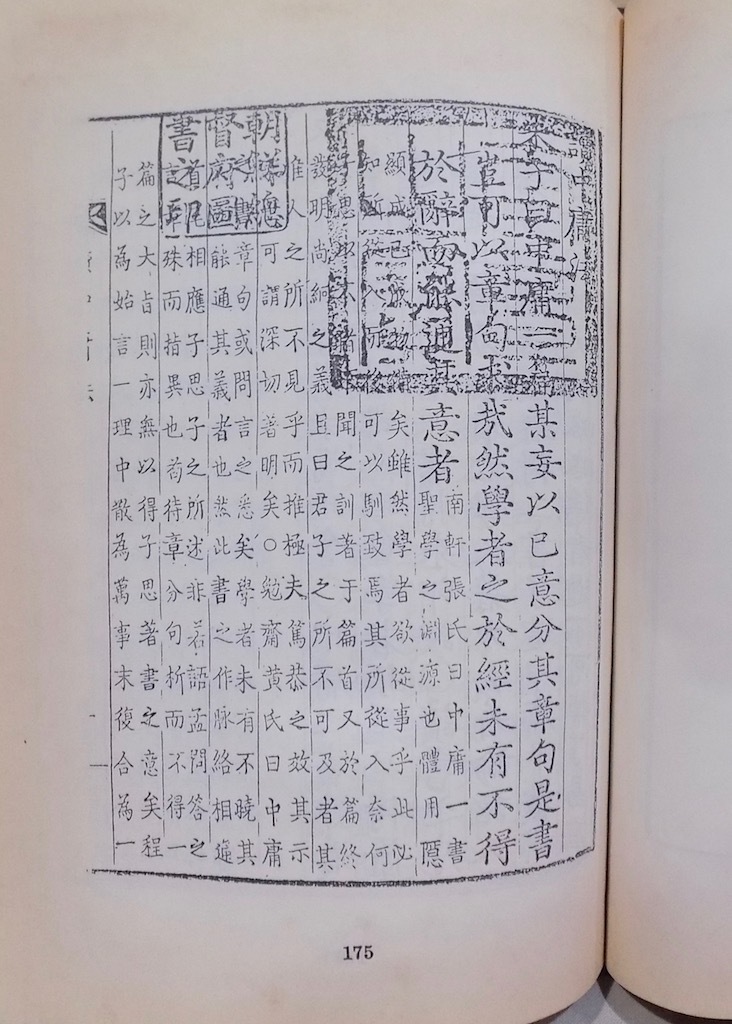 讀中庸法
朱子曰中庸一篇某妄以已意分其章句是書
豈可以章句求哉然學者之於經未有不得
於辭而能通其意者
南軒張氏曰中庸一書
聖學之淵源也體用隱
顯成已成物備矣雖然學者欲從事乎此必
知所從入而後可以馴致焉其所從入奈何
思以不睹不聞之訓著于篇首又於篇終
發明尚絅之義且曰君子之所不可及者其
惟人之所不見乎而推極夫篤恭之效其示
可謂深切著明矣○勉齋黃氏曰中庸
章句或問言之悉矣學者未有不曉其
能通其義者也然此書之作脈絡相通
尾相應子思子之所述非若語孟問答之
言章殊而指異也苟待章分句析而不得一
篇之大旨則亦無以得子思著書之意矣程
子以為始言一理中散為萬事末復合為一
朝鮮總
督府圖
書
一
175